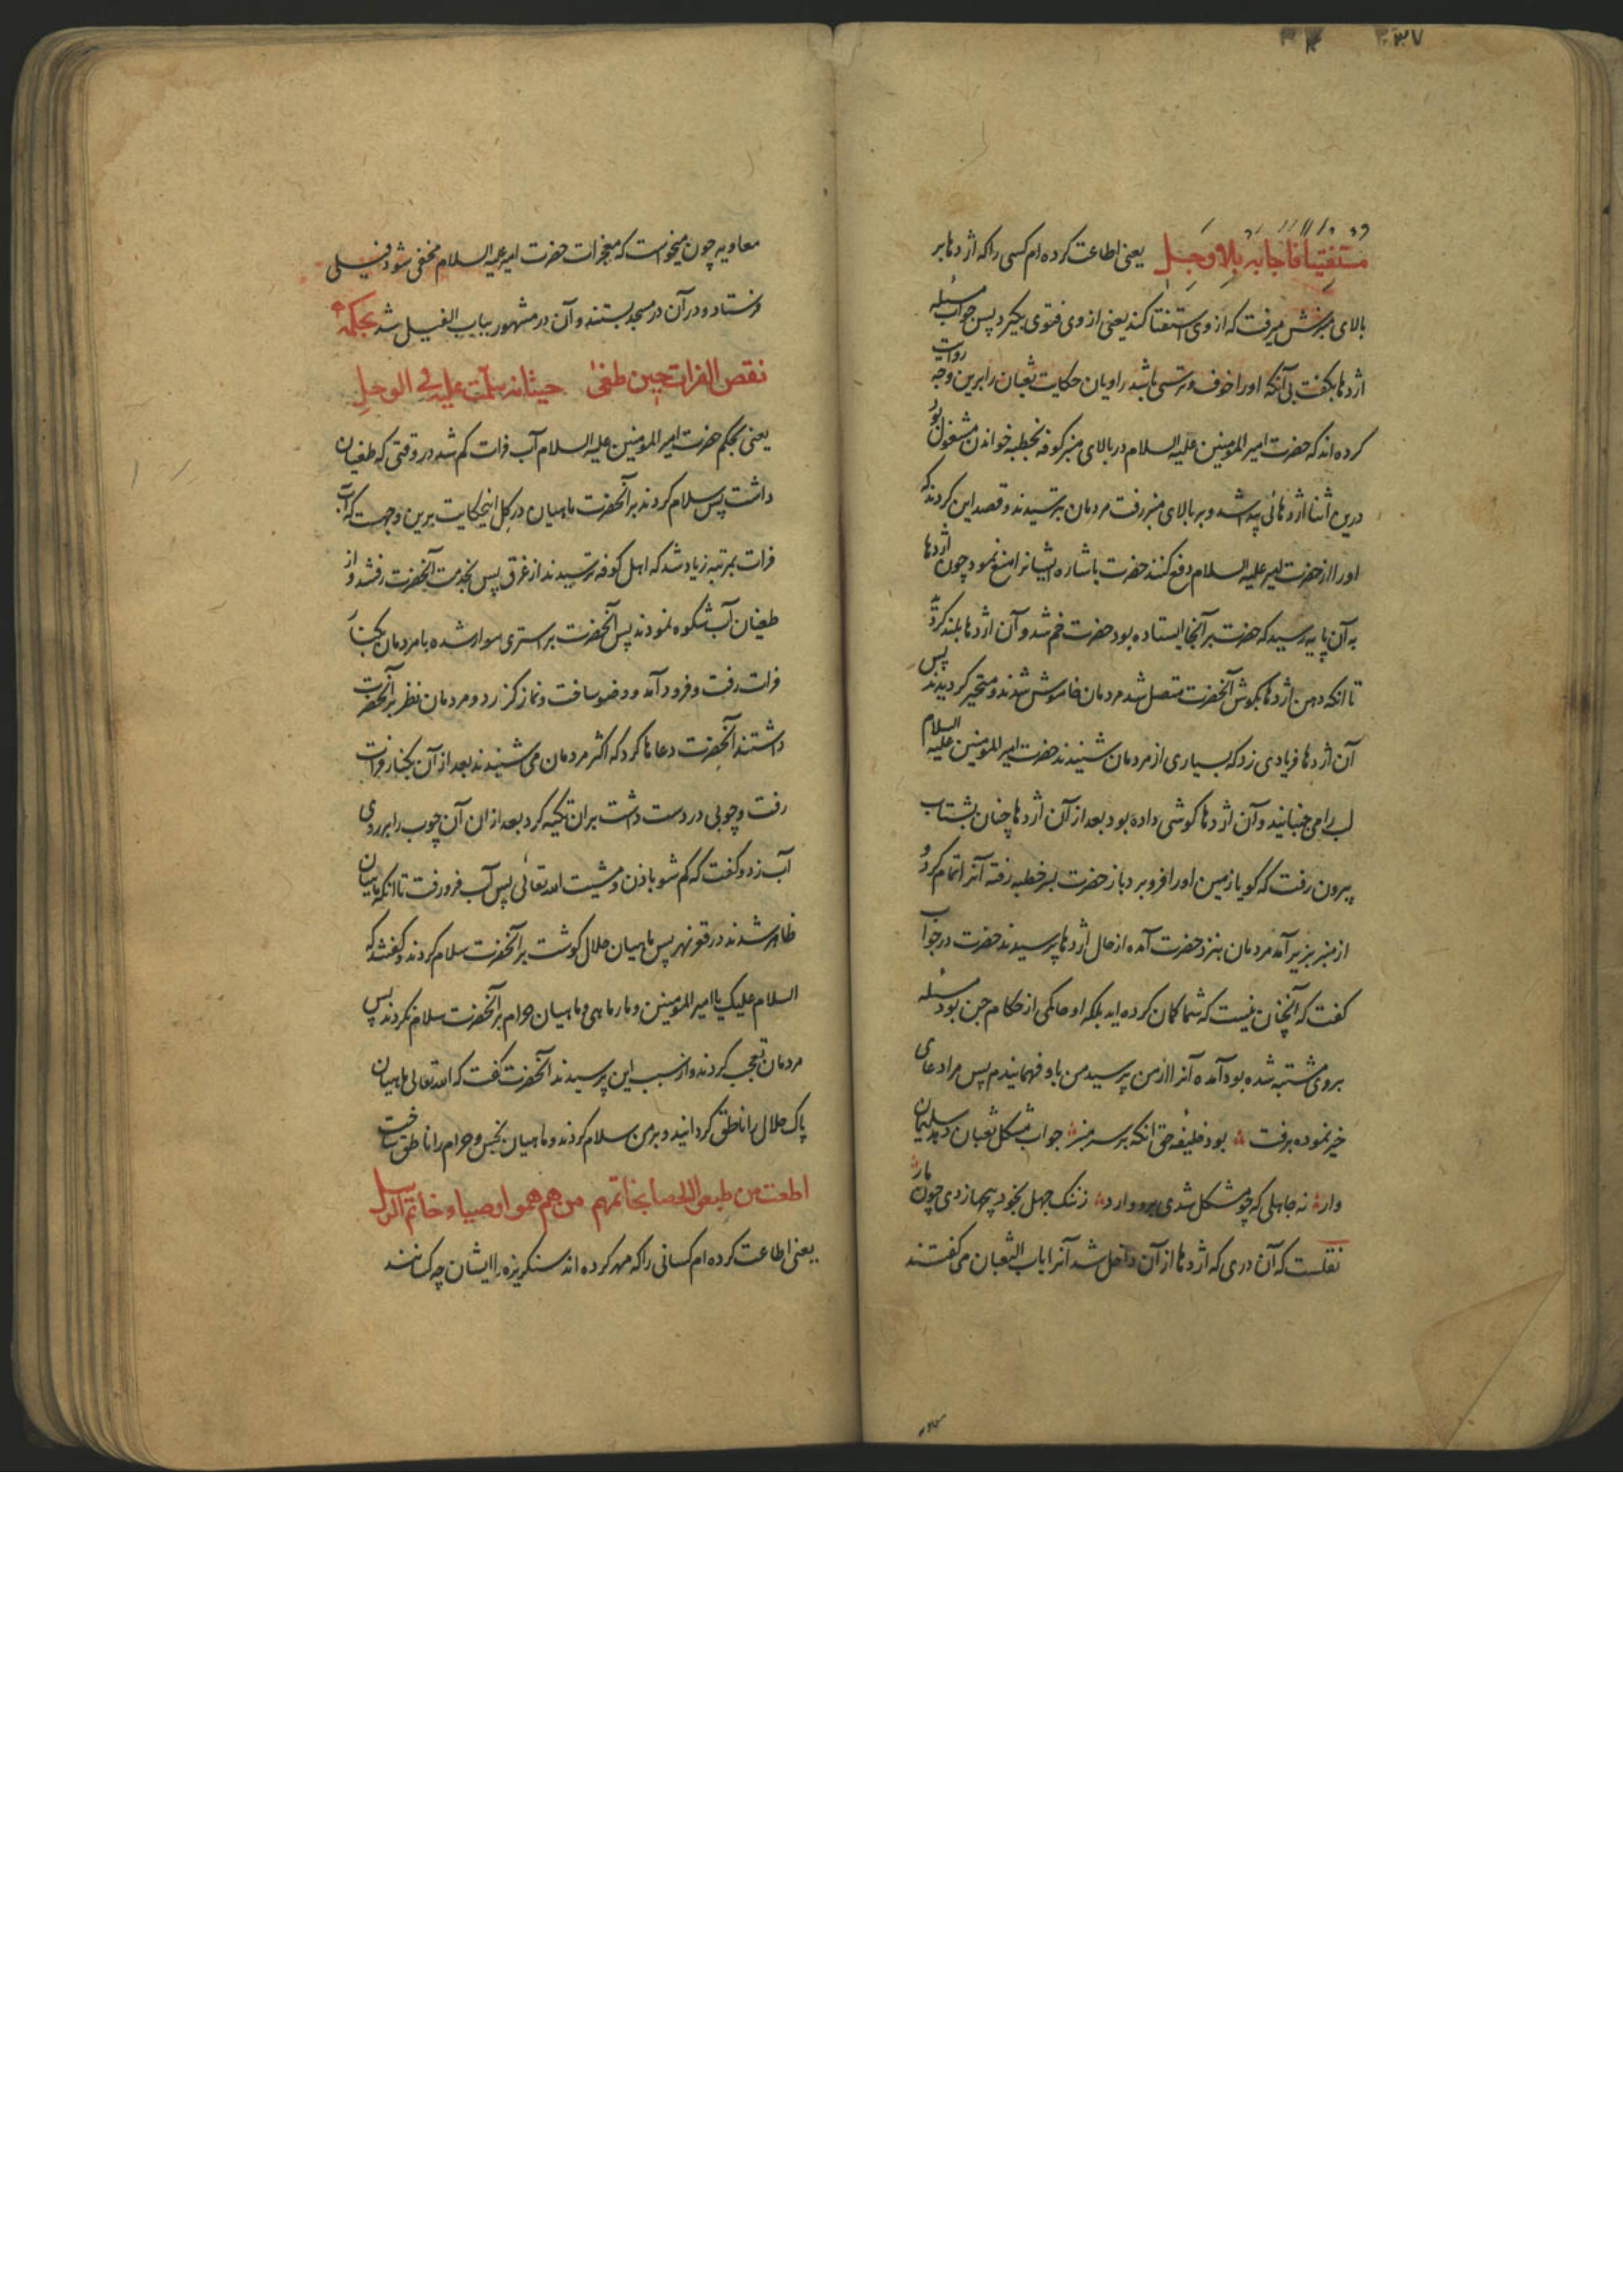 ۳۷
مستفتیا فاجابه بلا وجل یعنی اطاعت کرده ام کسی را که اژدها بر
بالای منبرش میرفت که از وی استفتا کند یعنی از وی فتوی بگیرد پس جواب مسئله
اژدها بگفت بی آنکه او را خوف و ترسی باشد راویان حکایت ثعبان را برین وجه روایت
کرده اند که حضرت امیر المومنین علیه السلام در بالای منبر کوفه بخطبه خواندن مشغول بود
درین اثنا اژدهائی پیدا شد و بر بالای منبر رفت مردمان بترسیدند و قصد این کردند که
او را از حضرت امیر علیه السلام دفع کنند حضرت باشاره ایشانرا منع نمود چون اژدها
به آن پایه رسید که حضرت بر آنجا ایستاده بود حضرت خم شد و آن اژدها بلند کرد
تا انکه دهن اژدها بگوش آنحضرت متصل شد مردمان خاموش شدند و متحیر گردیدند پس
آن اژدها فریادی زد که بسیاری از مردمان شنیدند حضرت امیر المومنین علیه السلام
لب را می جنبانید و آن اژدها گوشی داده بود بعد از آن اژدها چنان بشتاب
بیرون رفت که گویا زمین او را فرو برد باز حضرت بسر خطبه رفته آنرا تمام کرد و
از منبر بزیر آمد مردمان بنزد حضرت آمده از حال اژدها پرسیدند حضرت در جواب
گفت که آنچنان نیست که شما گمان کرده اید بلکه او حاکمی از حکام جن بود مسئله
بروی مشتبه شده بود آمده آنرا از من پرسید من باو فهمانیدم پس مرا دعای
خیر نموده برفت بود خلیفه حق انکه بر سر منبر جواب مشکل ثعبان دهد سلیمان
وار نه جاهلی که چو مشکل شدی برو وارد ز ننک جهل بخود پیچها زدی چون مار
نقلست که آن دری که اژدها از آن داخل شد آنرا باب الثعبان می گفتند
معاویه چون میخواست که معجزات حضرت امیر علیه السلام مخفی شود فیلی
فرستاد و در آن در مسجد بستند و آن در مشهور بباب الفیل شد بحکمه
نقص الفرات حین طغی حیتانه سلمت علیه فی الوحل
یعنی بحکم حضرت امیر المومنین علیه السلام آب فرات کم شد در وقتی که طغیان
داشت پس سلام کردند بر آنحضرت ماهیان در گل اینحکایت برین وجهست که آب
فرات بمرتبه زیاد شد که اهل کوفه ترسیدند از غرق پس بخدمت آنحضرت رفتند و از
طغیان آب شکوه نمودند پس آنحضرت بر استری سوار شده با مردمان بکنار
فرات رفت و فرود آمد و وضو ساخت و نماز گزارد و مردمان نظر بر آنحضرت
داشتند آنحضرت دعاها کرد که اکثر مردمان می شنیدند بعد از آن بکنار فرات
رفت و چوبی در دست داشت بر ان تکیه کرد بعد از ان آن چوب را بر روی
آب زد و گفت که کم شو باذن و مشیت الله تعالی پس آب فرو رفت تا انکه ماهیان
ظاهر شدند در قعر نهر پس ماهیان حلال گوشت بر آنحضرت سلام کردند و گفتند که
السلام علیک یا امیر المومنین و مارماهی و ماهیان حرام بر آنحضرت سلام نکردند پس
مردمان تعجب کردند و از سبب این پرسیدند آنحضرت گفت که الله تعالی ماهیان
پاک حلال را ناطق گردانید و بر من سلام کردند و ماهیان نجس و حرام را ناطق نساخت
اطعت من طبعوا الحصا بخاتمهم من هم همو اوصیاء خاتم الرسل
یعنی اطاعت کرده ام کسانی را که مهر کرده اند سنگریزه را ایشان چه کسانند